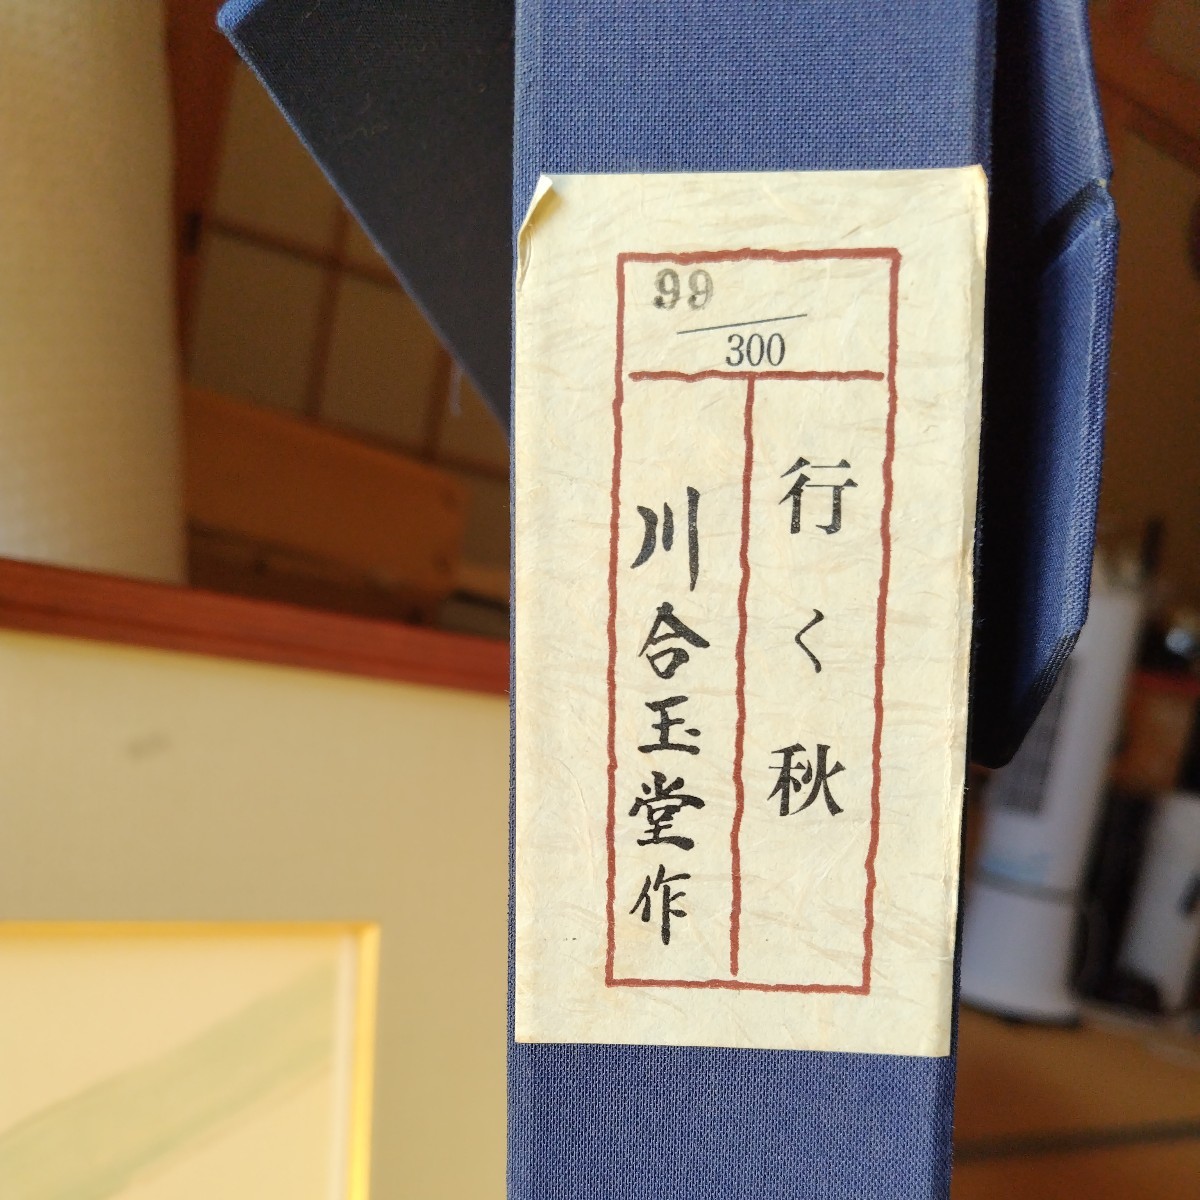 99
300
行く秋
川合玉堂作